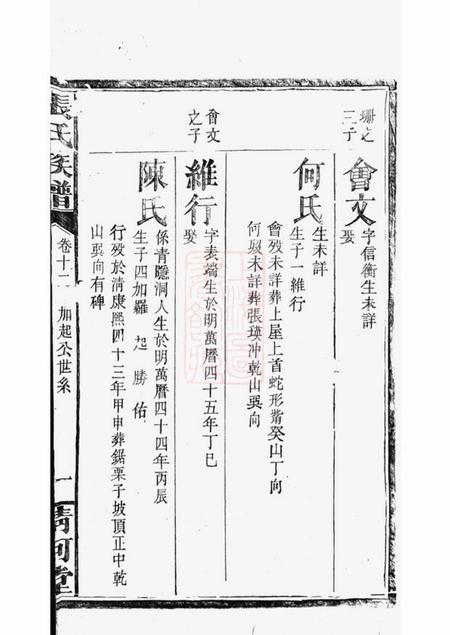 珊之
三子
會文
字信衡生未詳
娶
何氏
生未詳
生子一維行
會歿未詳葬上屋上首蛇形嘴癸山丁向
何歿未詳葬張瑛冲乾山巽向
會文
之子
維行
字表端生於明萬曆四十五年丁巳
娶
陳氏
係青隴洞人生於明萬曆四十四年丙辰
生子四加羅 起 勝 佑
行歿於清康熙四十三年甲申葬鋸栗子坡頂正中乾
山巽向有碑
張氏族譜
卷十二
加起公世系
一
清河堂